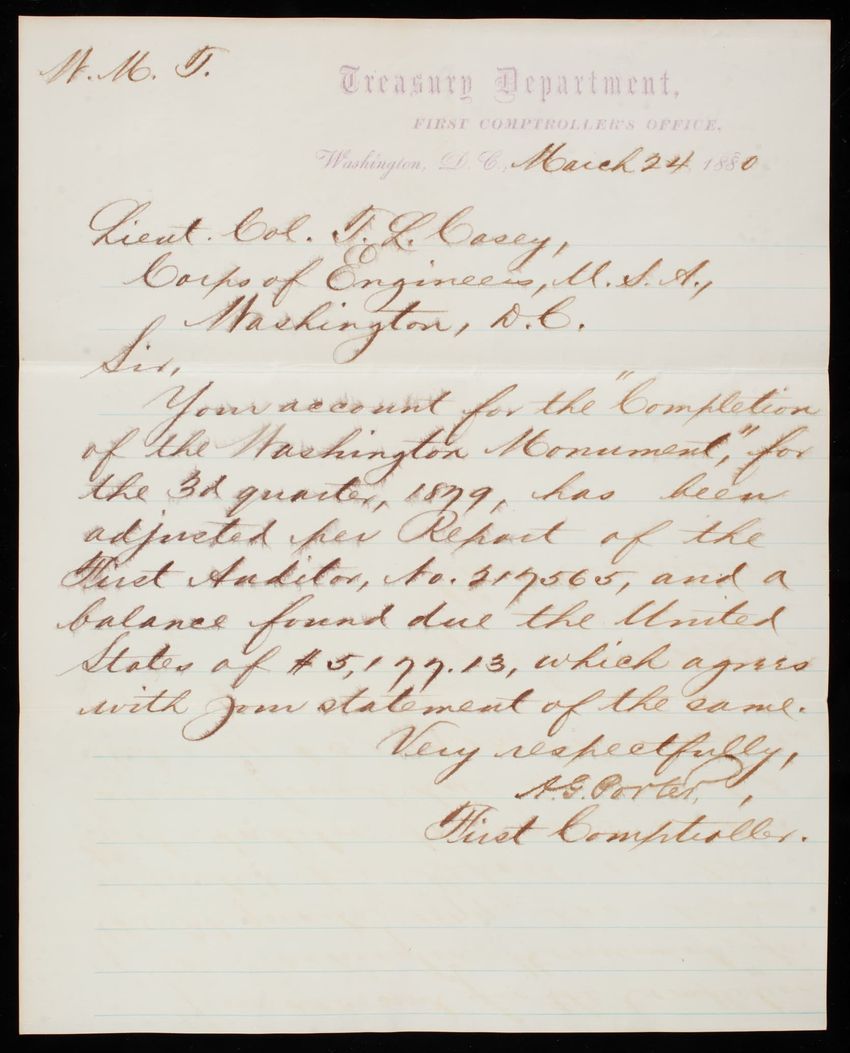 W. M. T.
Treasury Department,
FIRST COMPTROLLER'S OFFICE,
Washington, D. C., March 24 1880
Lieut. Col. T. L. Casey,
Corps of Engineers, U. S. A.,
Washington, D. C.
Sir,
Your account for the "Completion
of the Washington Monument," for
the 3d quarter, 1879, has been
adjusted per Report of the
First Auditor, No. 217565, and a
balance found due the United
States of $5,177.13, which agrees
with your statement of the same.
Very respectfully,
A. G. Porter,
First Comptroller.